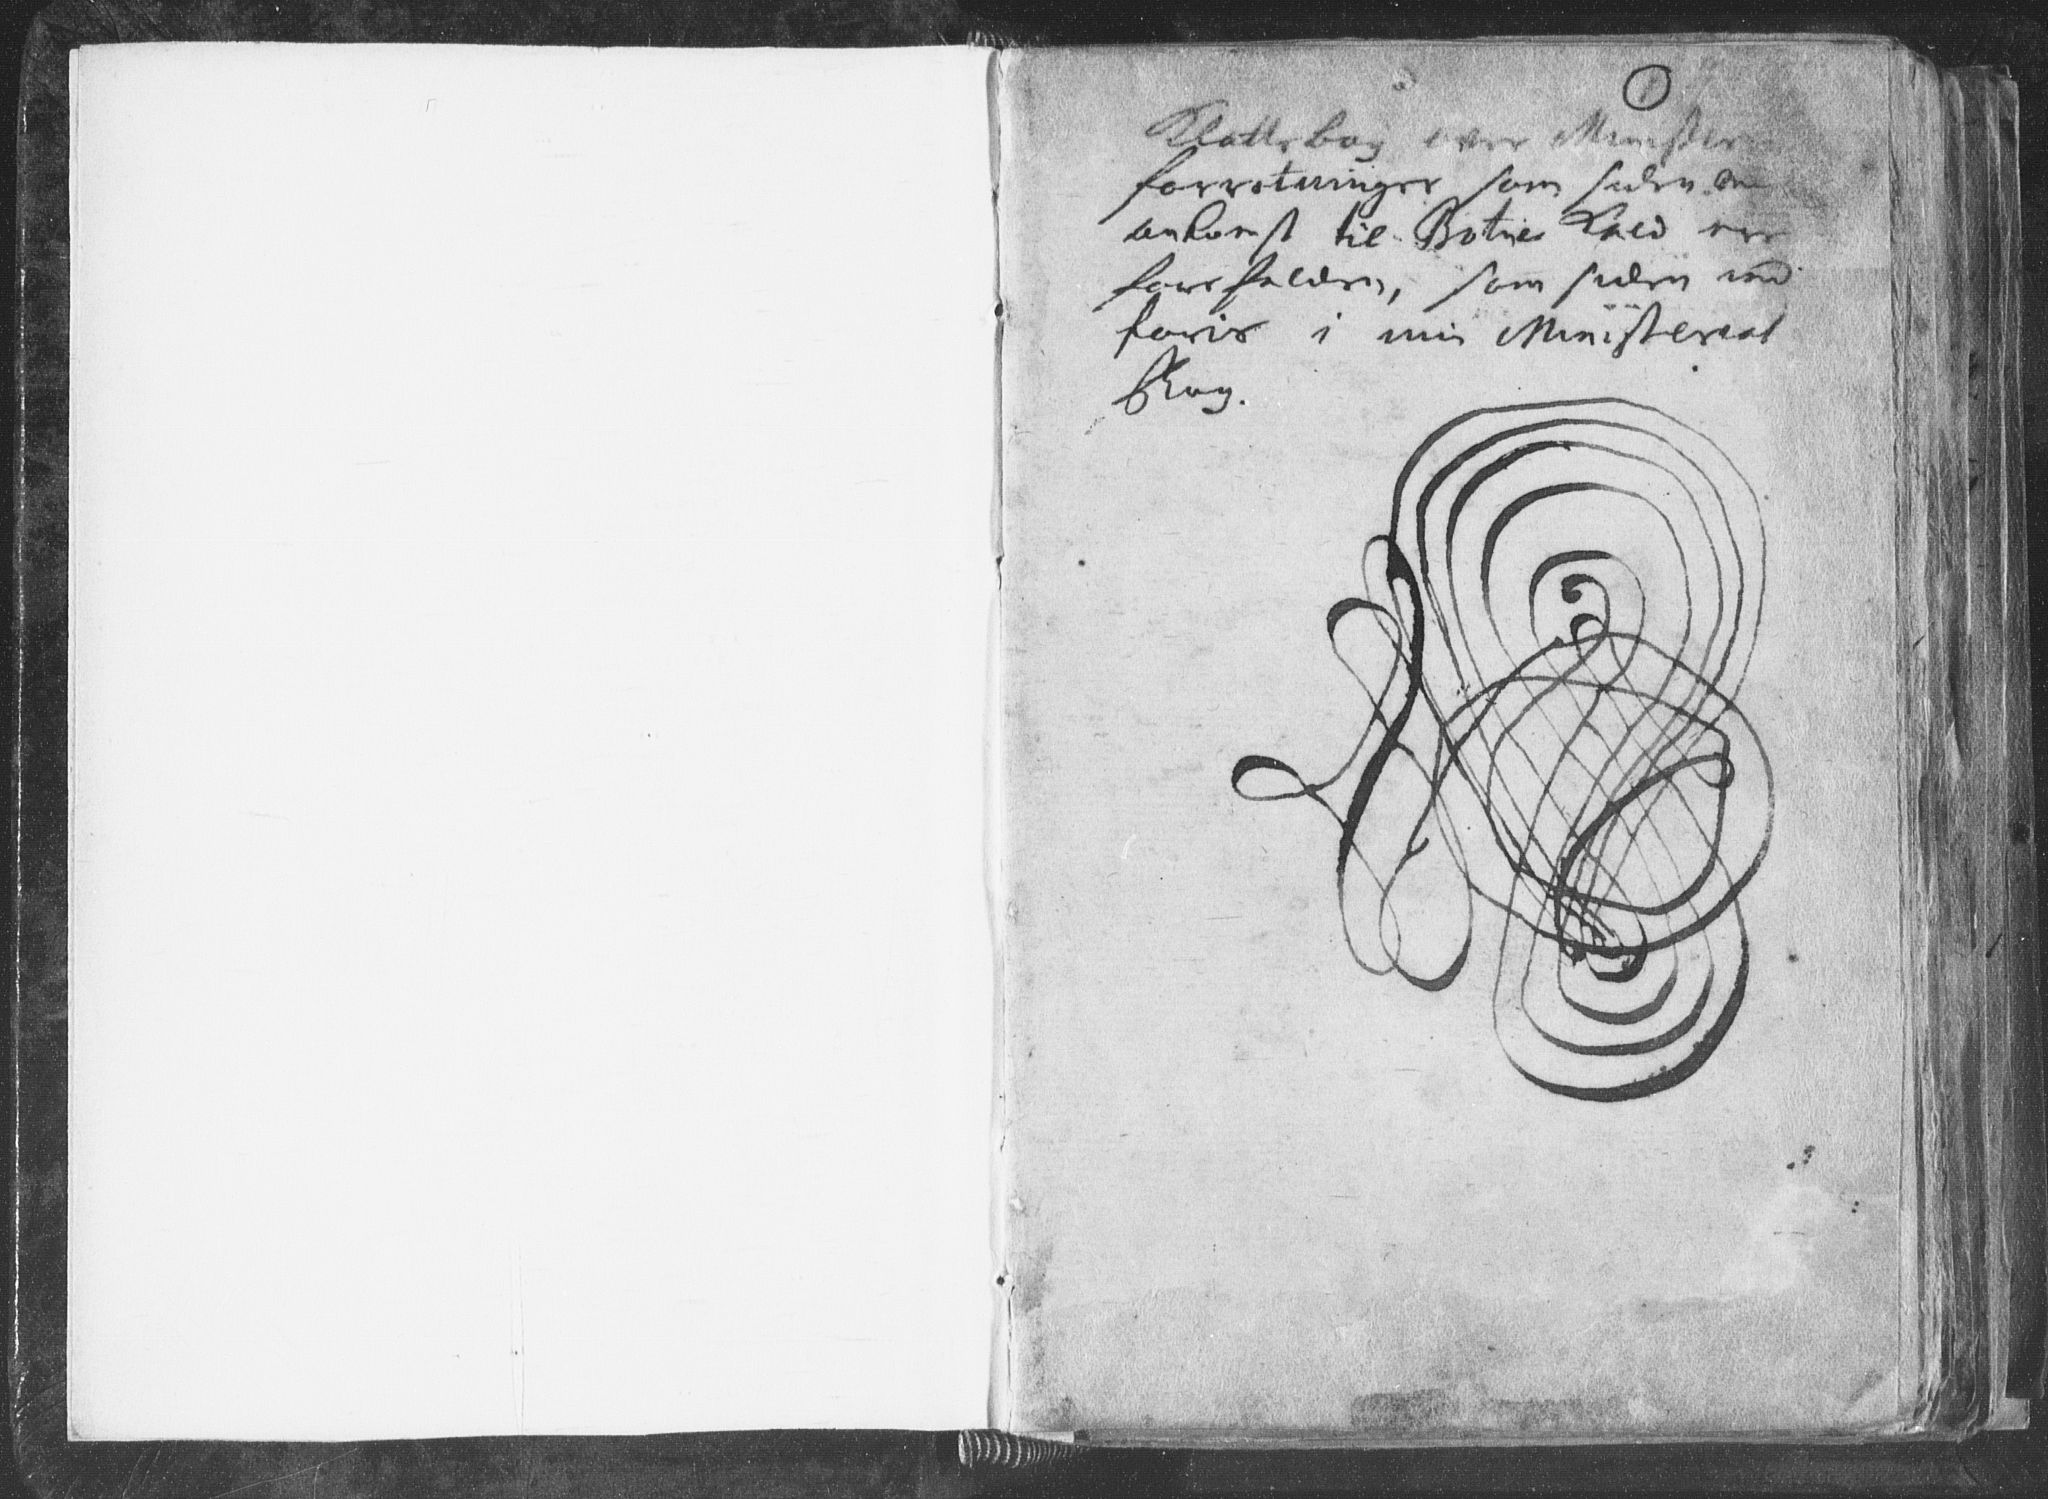 Kladbog over Minister
forretninger som siden min
ankomst til Botnes Kald ere
forefalden, som siden ind
føris i min Ministerial
Bog.